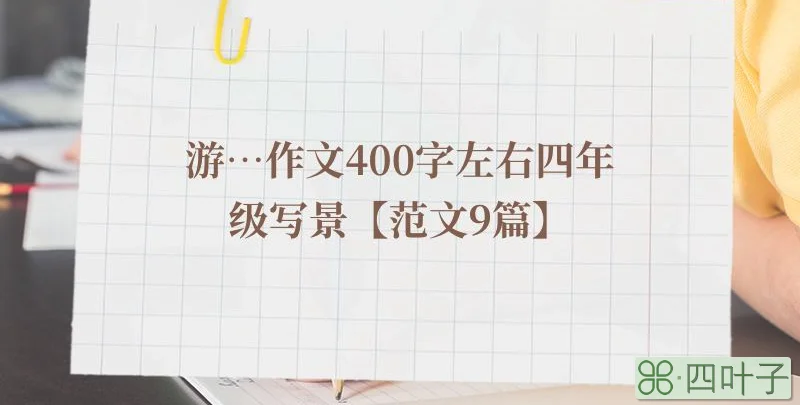 游…作文400字左右四年
级写景【范文9篇】
四叶子